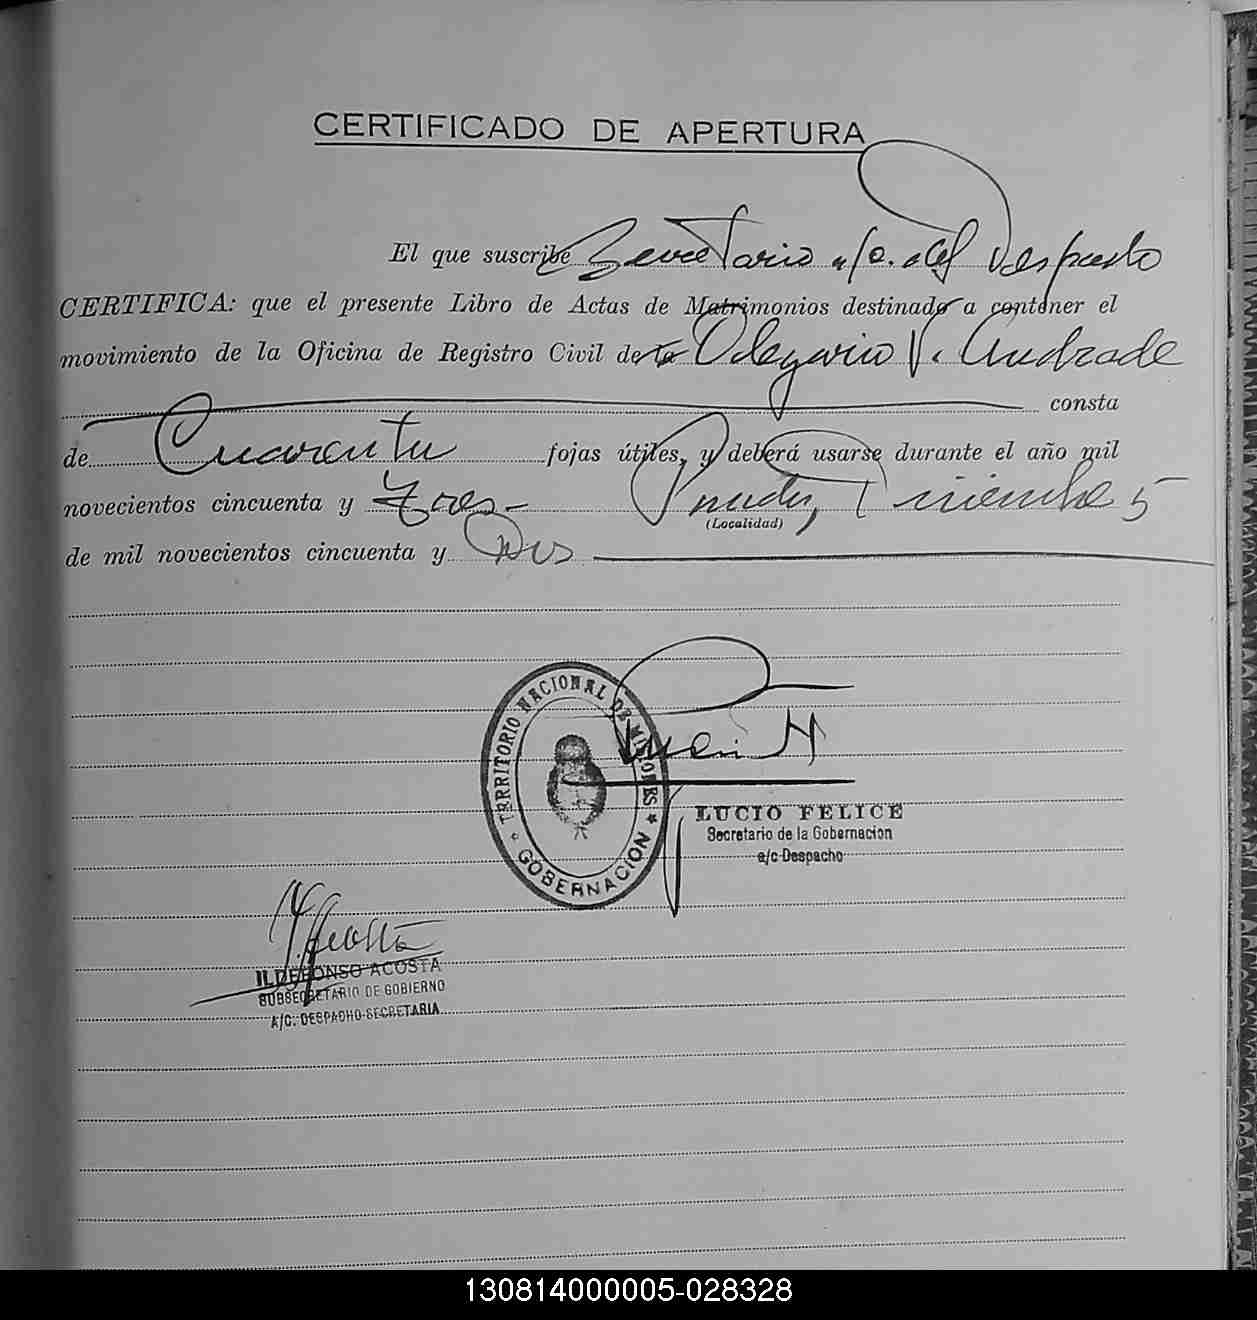 CERTIFICADO DE APERTURA
El que suscribe Secretario a/c. del Despacho
CERTIFICA: que el presente Libro de Actas de Matrimonios destinado a contener el
movimiento de la Oficina de Registro Civil de la Olegario V. Andrade
consta
de Cuarenta fojas útiles, y deberá usarse durante el año mil
novecientos cincuenta y tres- Posadas, Diciembre 5
(Localidad)
de mil novecientos cincuenta y Dos
TERRITORIO NACIONAL DE MISIONES
* GOBERNACION *
LUCIO FELICE
Secretario de la Gobernacion
a/c Despacho
ILDEFONSO ACOSTA
SUBSECRETARIO DE GOBIERNO
A/C. DESPACHO SECRETARIA
130814000005-028328